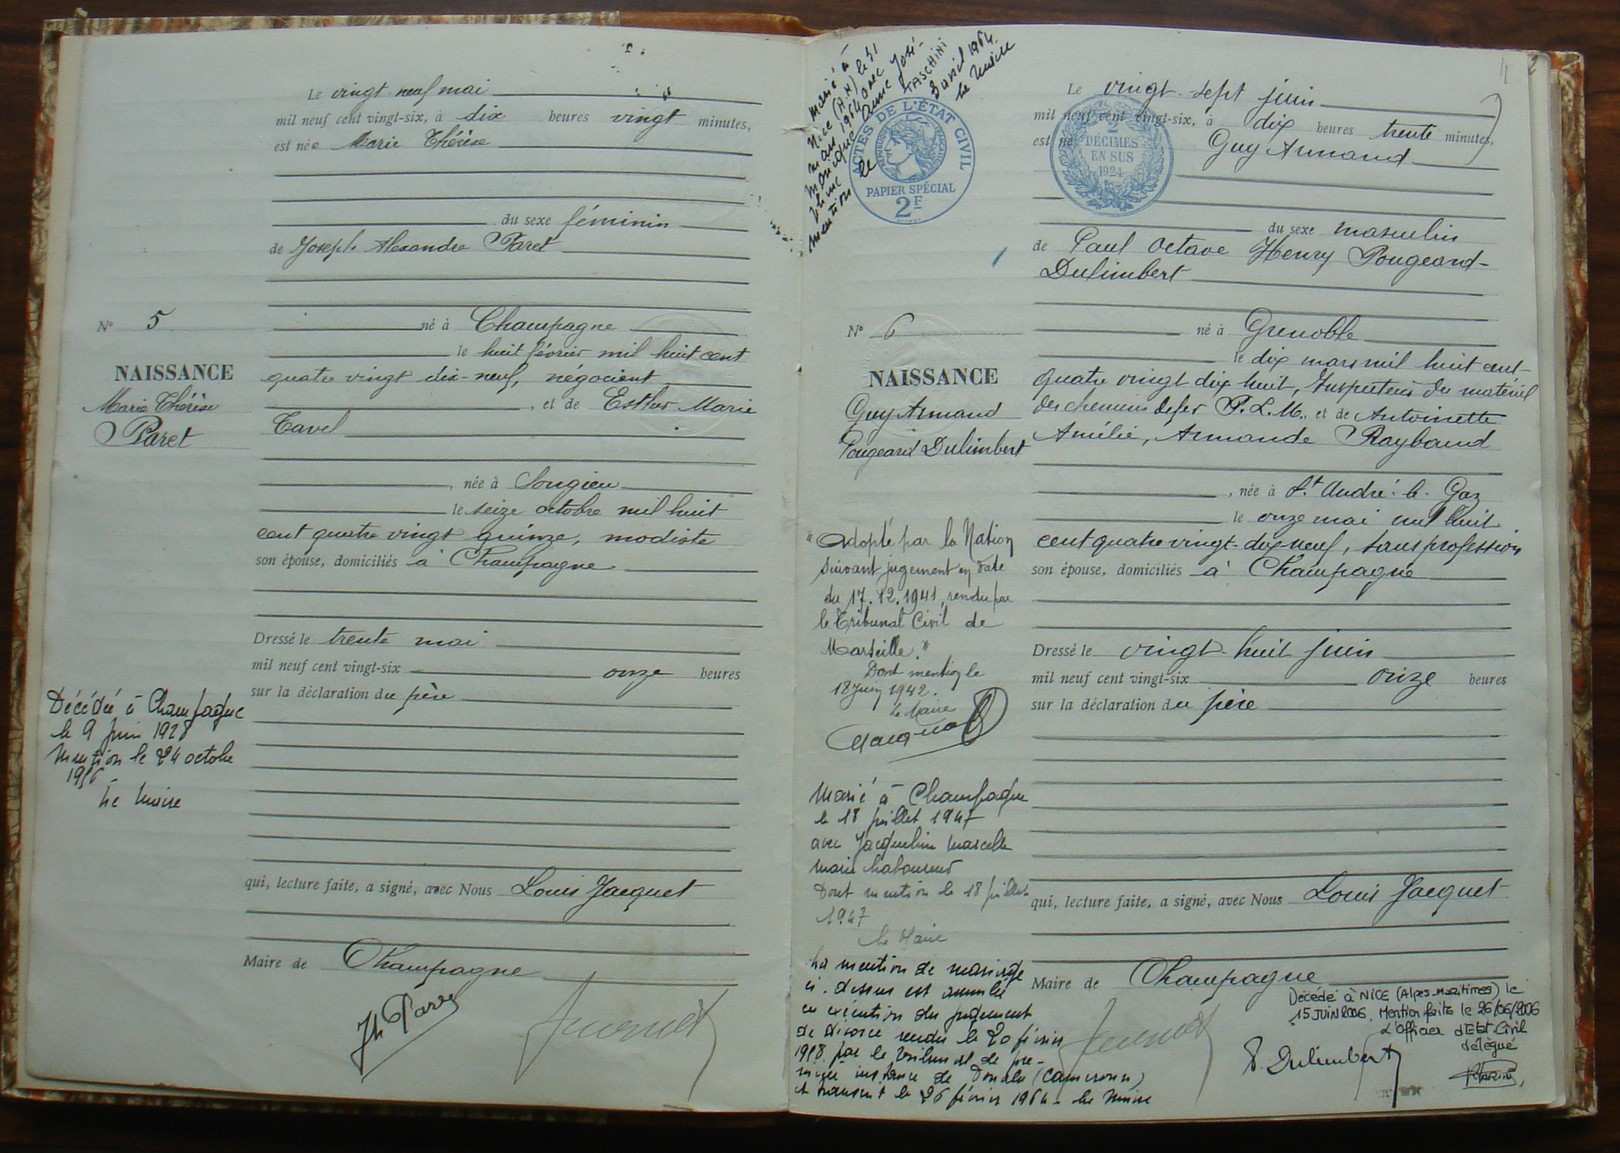 Le vingt neuf mai
mil neuf cent vingt-six, à six heures vingt minutes,
est née Marie Thérèse
du sexe féminin
de Joseph Alexandre Paret
né à Champagne
le huit février mil huit cent
quatre vingt dix-neuf, négociant
, et de Esther Marie
Tavel
, née à Songieu
le seize octobre mil huit
cent quatre vingt quinze, modiste
son épouse, domiciliés à Champagne
Dressé le trente mai
mil neuf cent vingt-six onze heures
sur la déclaration du père
qui, lecture faite, a signé, avec Nous Louis Jacquet
Maire de Champagne
N° 5
NAISSANCE
Marie Thérèse
Paret
Décédée à Champagne
le 9 juin 1928
Mention le 24 octobre
1956
Le Maire
Marié à
Nice (A.M) le 31
mars 1964 avec
Monique Anne José-
TASCHINI
mention le 3 avril 1964
Le Maire
ACTES DE L'ÉTAT CIVIL
PAPIER SPÉCIAL
2F
2
DÉCIMES
EN SUS
1924
Le vingt-sept juin
mil neuf cent vingt-six, à dix heures trente minutes,
est né Guy Armand
du sexe masculin
de Paul Octave Henry Pougeard-
Dulimbert
né à Grenoble
le dix mars mil huit cent-
quatre vingt dix huit, Inspecteur du matériel
des chemins de fer P.L.M., et de Antoinette
Amélie, Armande Raybaud
, née à St André-le-Gaz
le onze mai mil huit
cent quatre vingt-dix-neuf, sans profession
son épouse, domiciliés à Champagne
Dressé le vingt-huit juin
mil neuf cent vingt-six onze heures
sur la déclaration du père
qui, lecture faite, a signé, avec Nous Louis Jacquet
Maire de Champagne
N° 6
NAISSANCE
Guy Armand
Pougeard Dulimbert
"Adopté par la Nation
suivant jugement en date
du 17.12.1941 rendu par
le Tribunal Civil de
Marseille."
Dont mention le
18 Juin 1942.
Le Maire
Marié à Champagne
le 18 juillet 1947
avec Jacqueline Marcelle
Marie
Dont mention le 18 juillet
1947
Le Maire
La mention de mariage
ci-dessus est annulée
en exécution du jugement
de divorce rendu le 20 février
1958 par le Tribunal de pre-
mière instance de Douala (Cameroun)
et transcrit le 26 février 1964 - Le Maire
Décédé à NICE (Alpes-Maritimes) le
15 JUIN 2006. Mention faite le 26/06/2006
L'Officier d'Etat Civil
délégué
P. Dulimbert